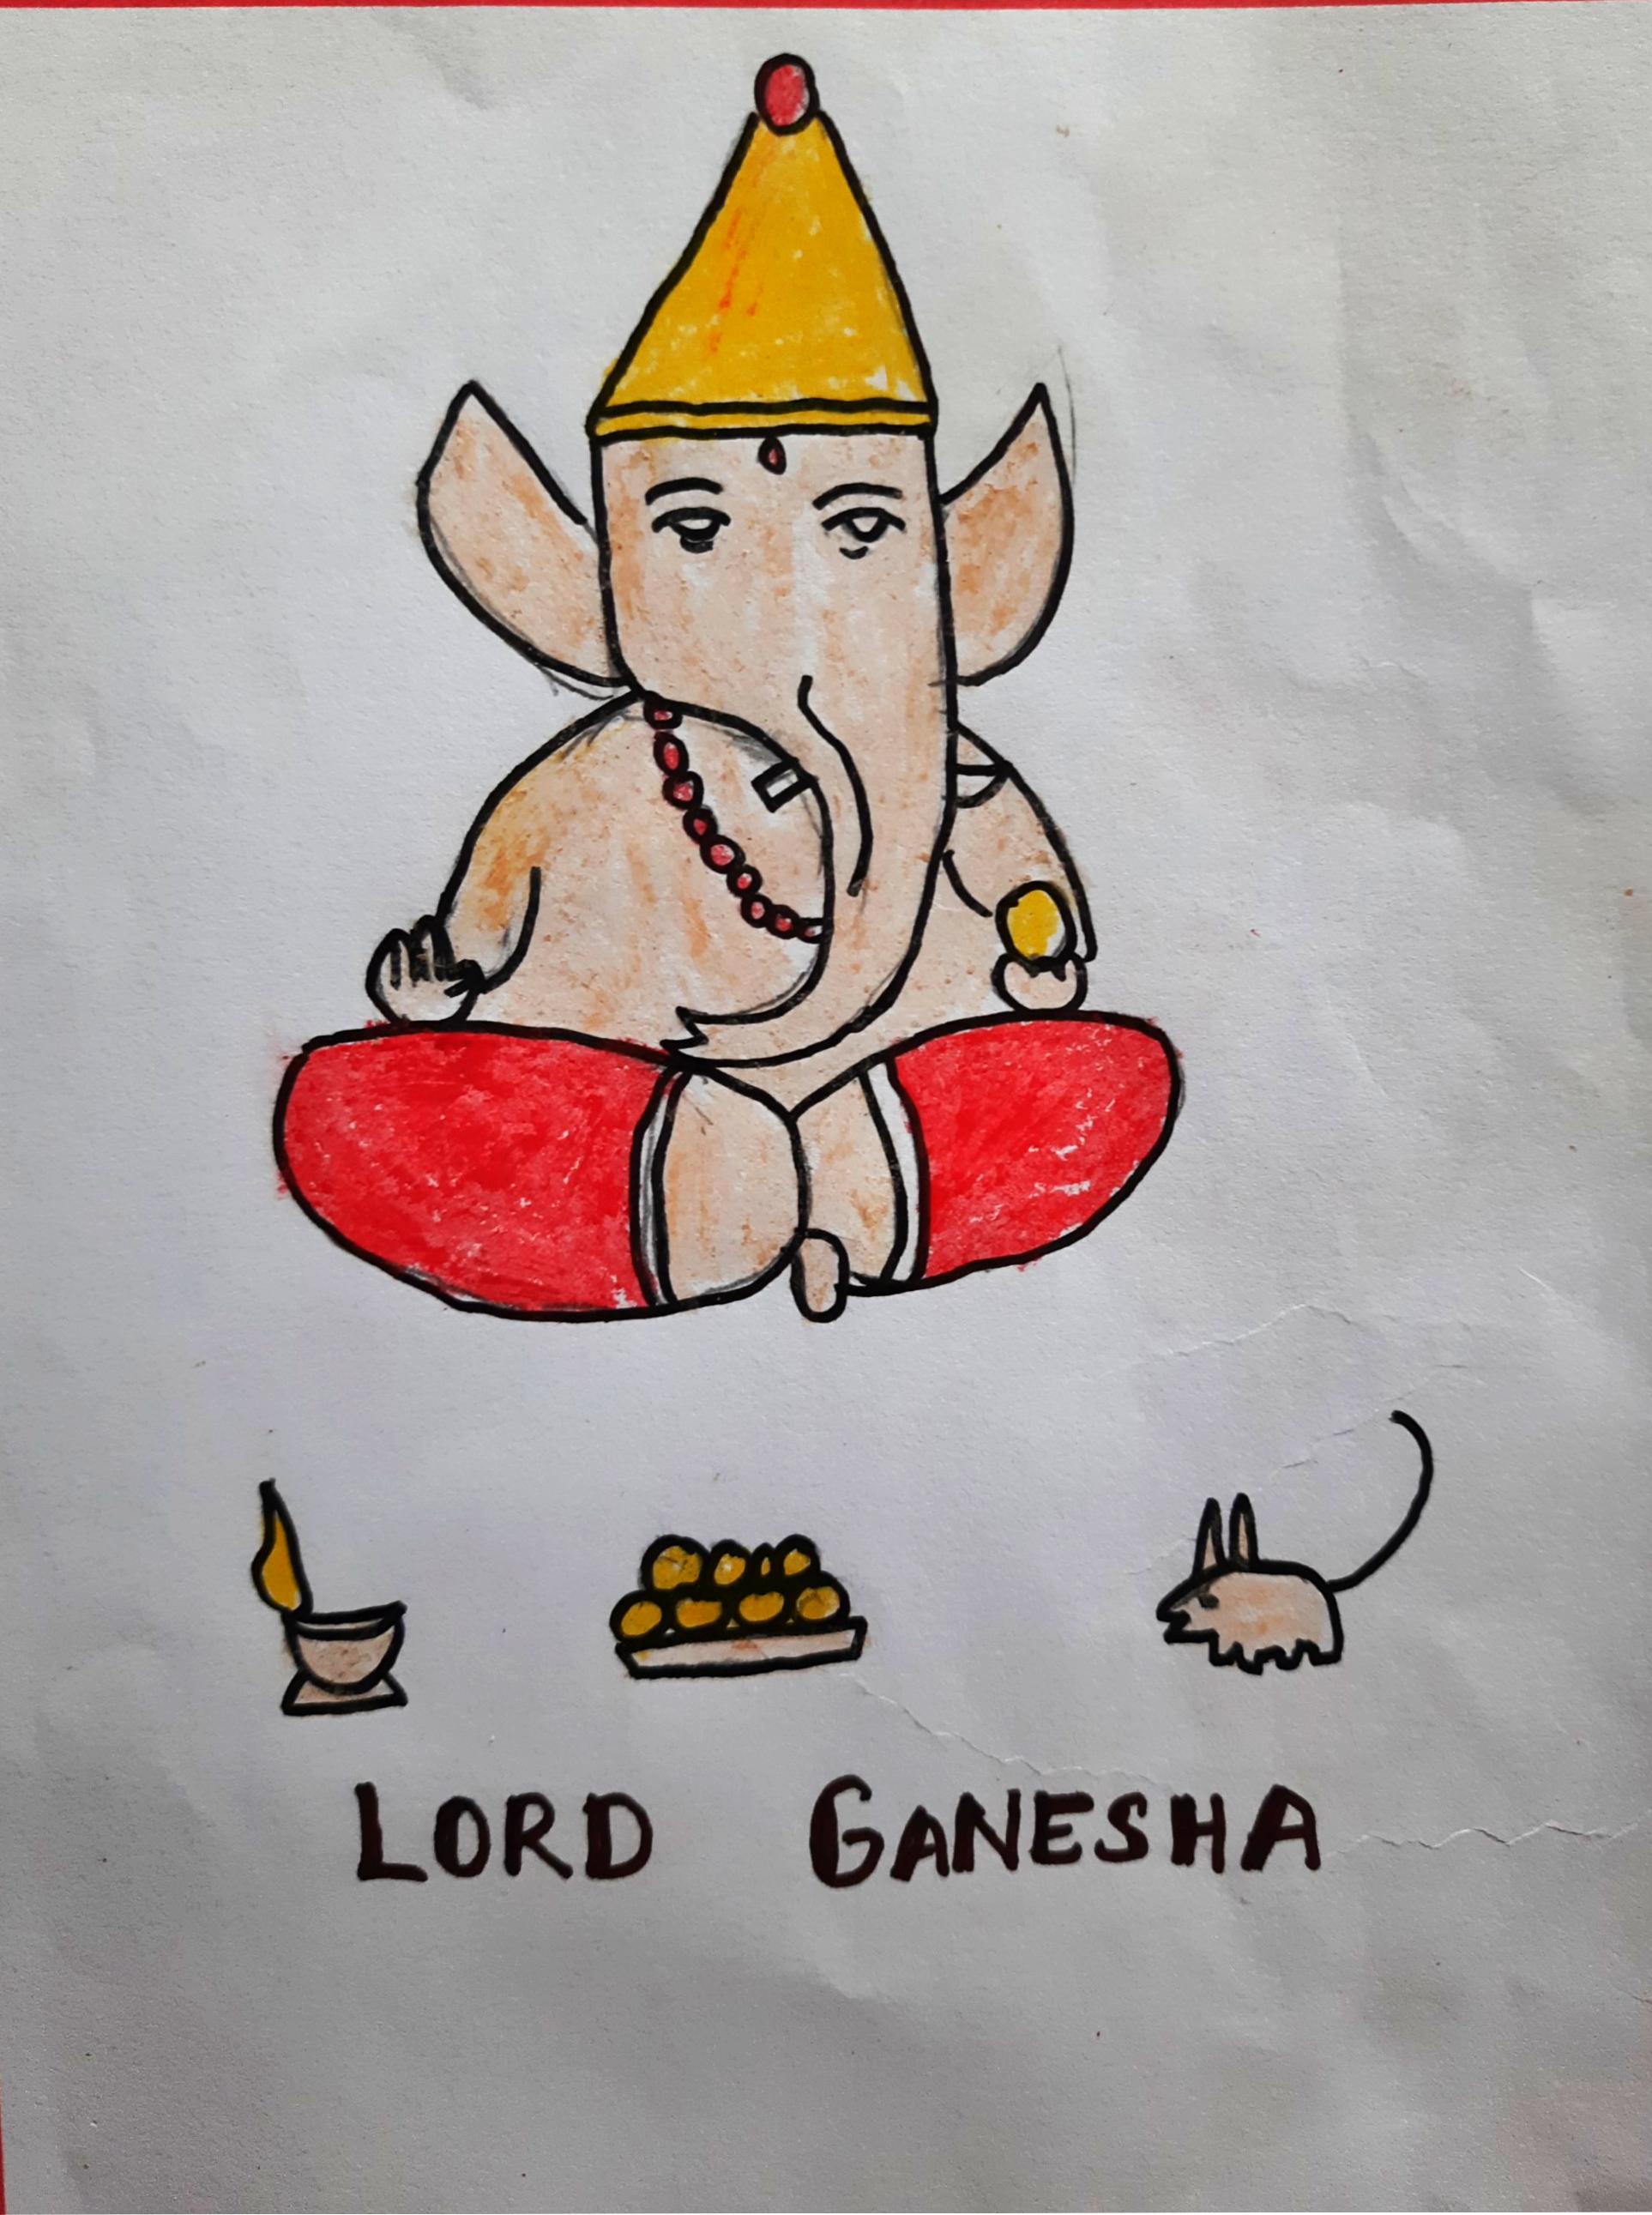 LORD GANESHA